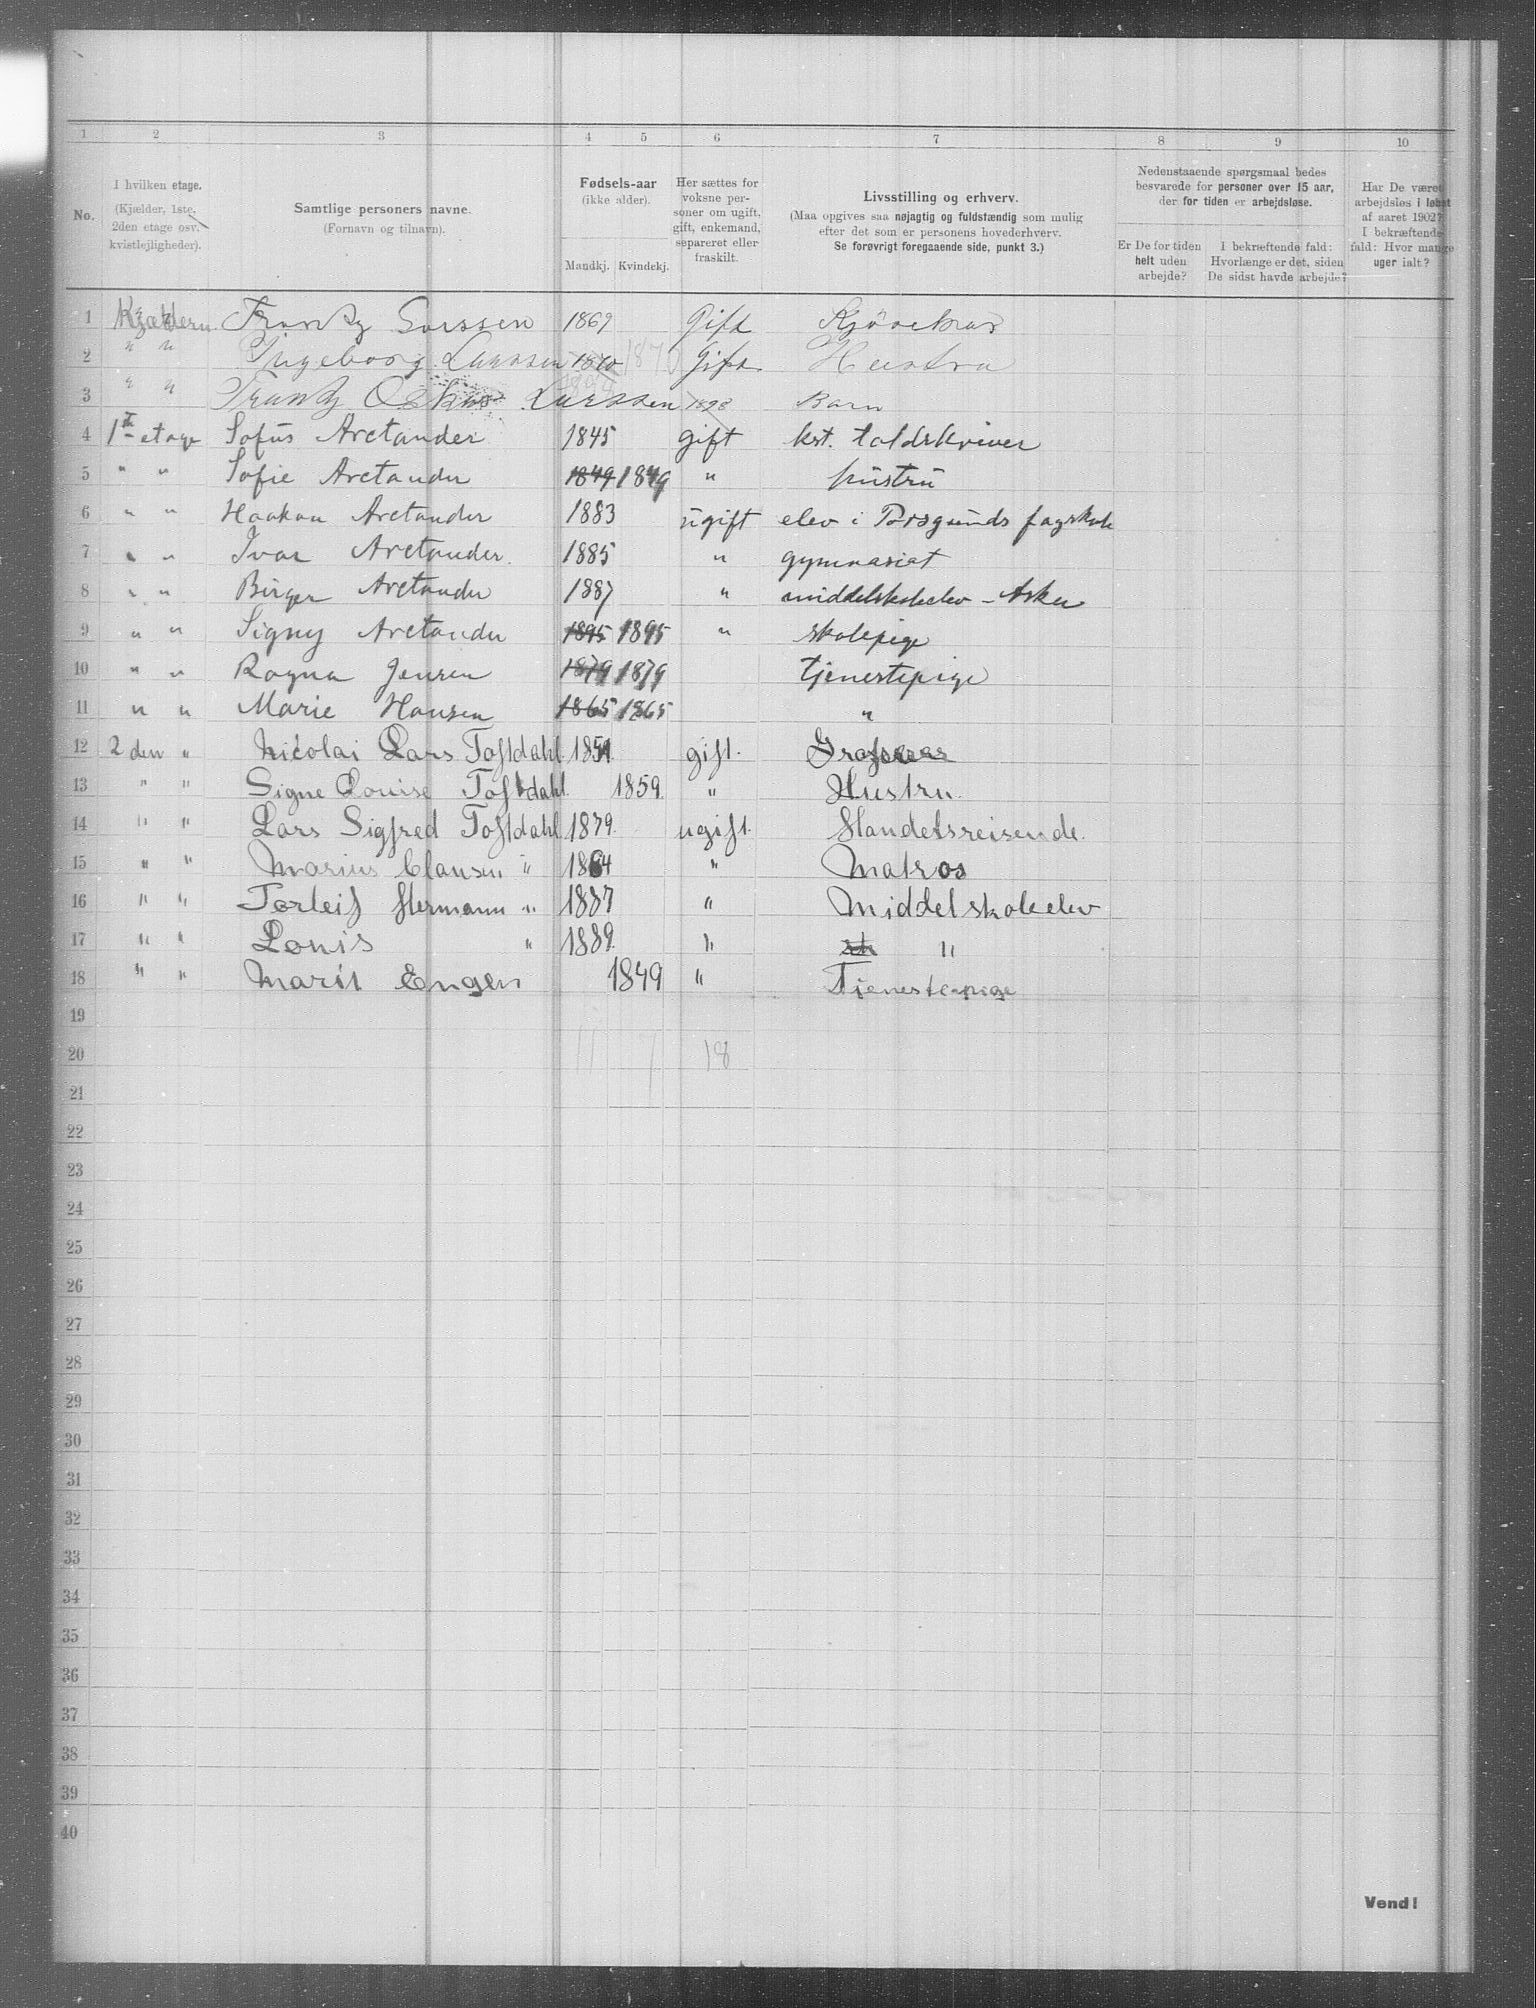 1 2 3 4 5 6 7 8 9 10
No.
I hvilken etage.
(Kjælder, 1ste,
2den etage osv.
kvistlejligheder).
Samtlige personers navne.
(Fornavn og tilnavn).
Fødsels-aar
(ikke alder).
Mandkj. Kvindekj.
Her sættes for
voksne per-
soner om ugift,
gift, enkemand,
separeret eller
fraskilt.
Livsstilling og erhverv.
(Maa opgives saa nøjagtig og fuldstændig som mulig
efter det som er personens hovederhverv.
Se forøvrigt foregaaende side, punkt 3.)
Nedenstaaende spørgsmaal bedes
besvarede for personer over 15 aar,
der for tiden er arbejdsløse.
Er De for tiden
helt uden
arbejde?
I bekræftende fald:
Hvorlænge er det, siden
De sidst havde arbejde?
Har De været
arbejdsløs i løbet
af aaret 1902?
I bekræftende
fald: Hvor mange
uger ialt?
1 Kjældern Frantz Larssen 1869 Gift
2 " " Ingeborg Larssen 1870 1870 Gift Hustru
3 " " Frantz Oskar Larssen 1898 Barn
4 1ste etage Sofus Arctander 1845 gift kst. toldskriver
5 " " Sofie Arctander 1849 1849 " hustru
6 " " Haakon Arctander 1883 ugift elev i Porsgrunds fagskole
7 " " Ivar Arctander. 1885 " gymnasiat
8 " " Birger Arctander 1887 " middelskoleelev - Asker
9 " " Signy Arctander 1895 1895 " skolepige
10 " " Ragna Jensen 1879 1879 tjenestepige
11 " " Marie Hansen 1865 1865 "
12 2den " Nicolai Lars Toftdahl 1851. gift.
13 " " Signe Louise Toftdahl. 1859. " Hustru.
14 " " Lars Sigfred Toftdahl 1879. ugift. Handelsreisende.
15 " " Marius Clausen " 1864 " Matros
16 " " Torleif Hermann " 1887 " Middelskoleelev
17 " " Louis " 1889. " "
18 " " Marit Engen 1849 " Tjenestepige
19
20 11 7 18
21
22
23
24
25
26
27
28
29
30
31
32
33
34
35
36
37
38
39
40
Vend!